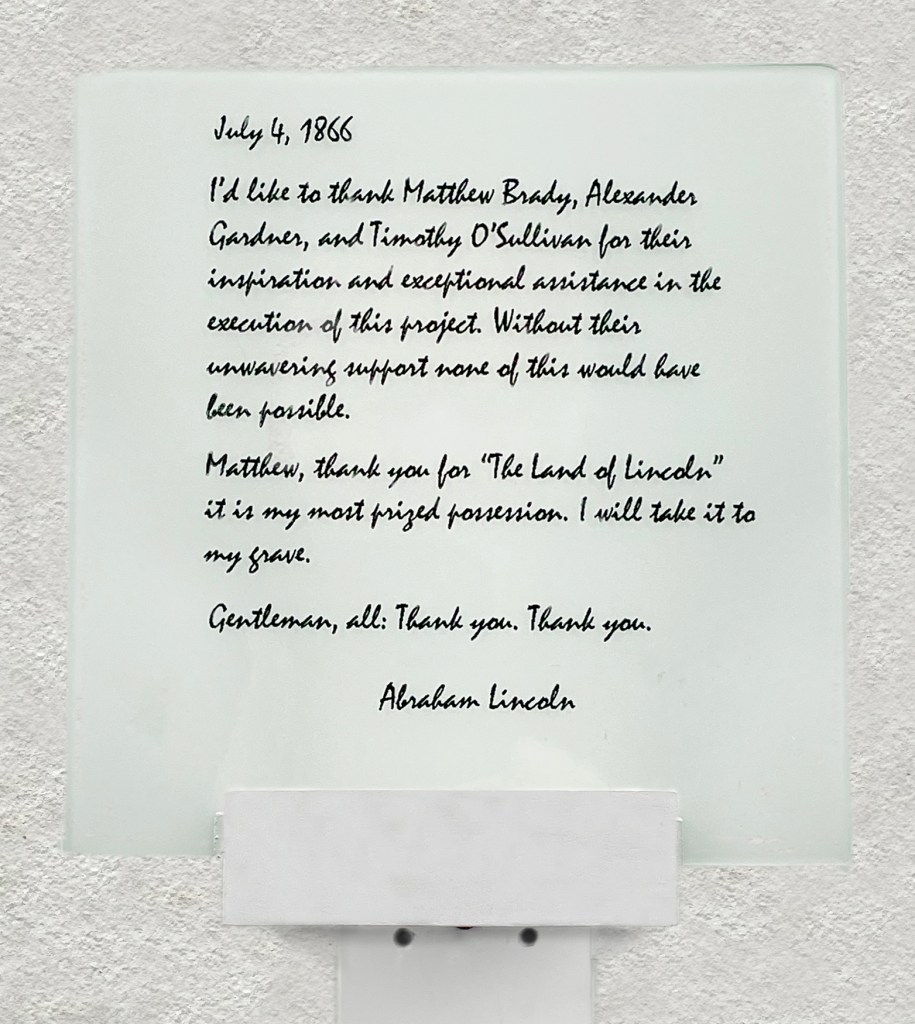 July 4, 1866
I'd like to thank Matthew Brady, Alexander
Gardner, and Timothy O'Sullivan for their
inspiration and exceptional assistance in the
execution of this project. Without their
unwavering support none of this would have
been possible.
Matthew, thank you for "The Land of Lincoln"
it is my most prized possession. I will take it to
my grave.
Gentleman, all: Thank you. Thank you.
Abraham Lincoln